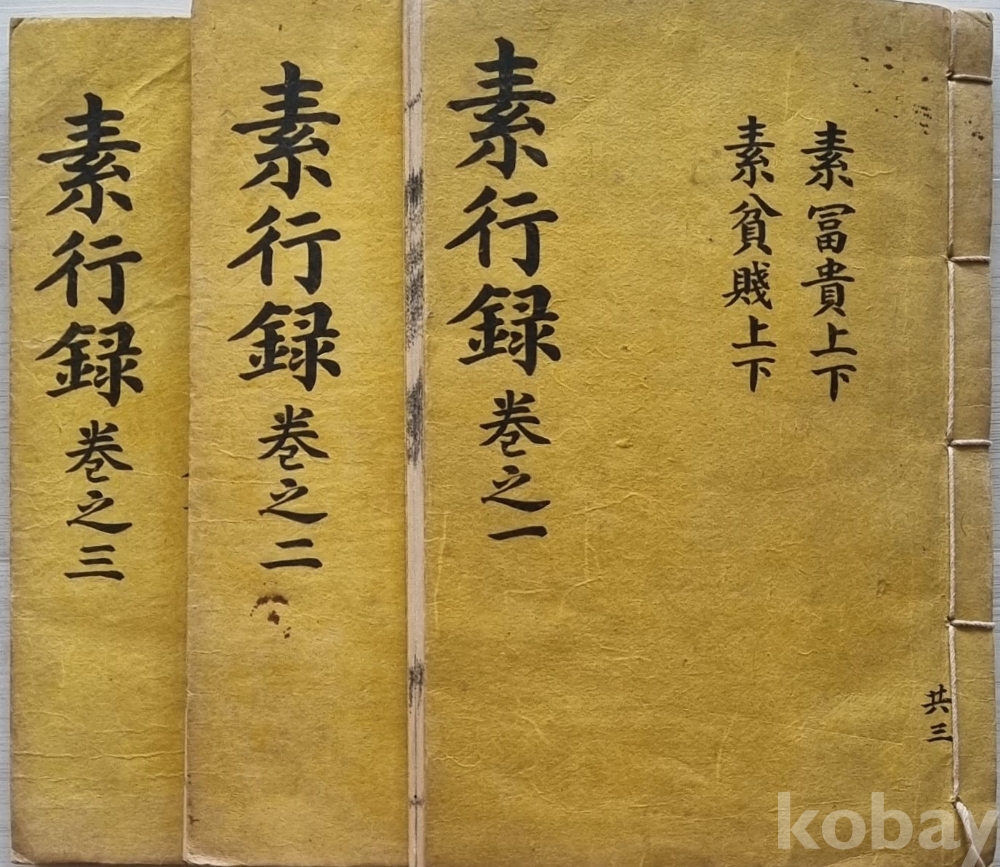 素冨貴上下
素貧賤上下
共三
素行録 卷之一
素行録 卷之二
素行録 卷之三
kobay